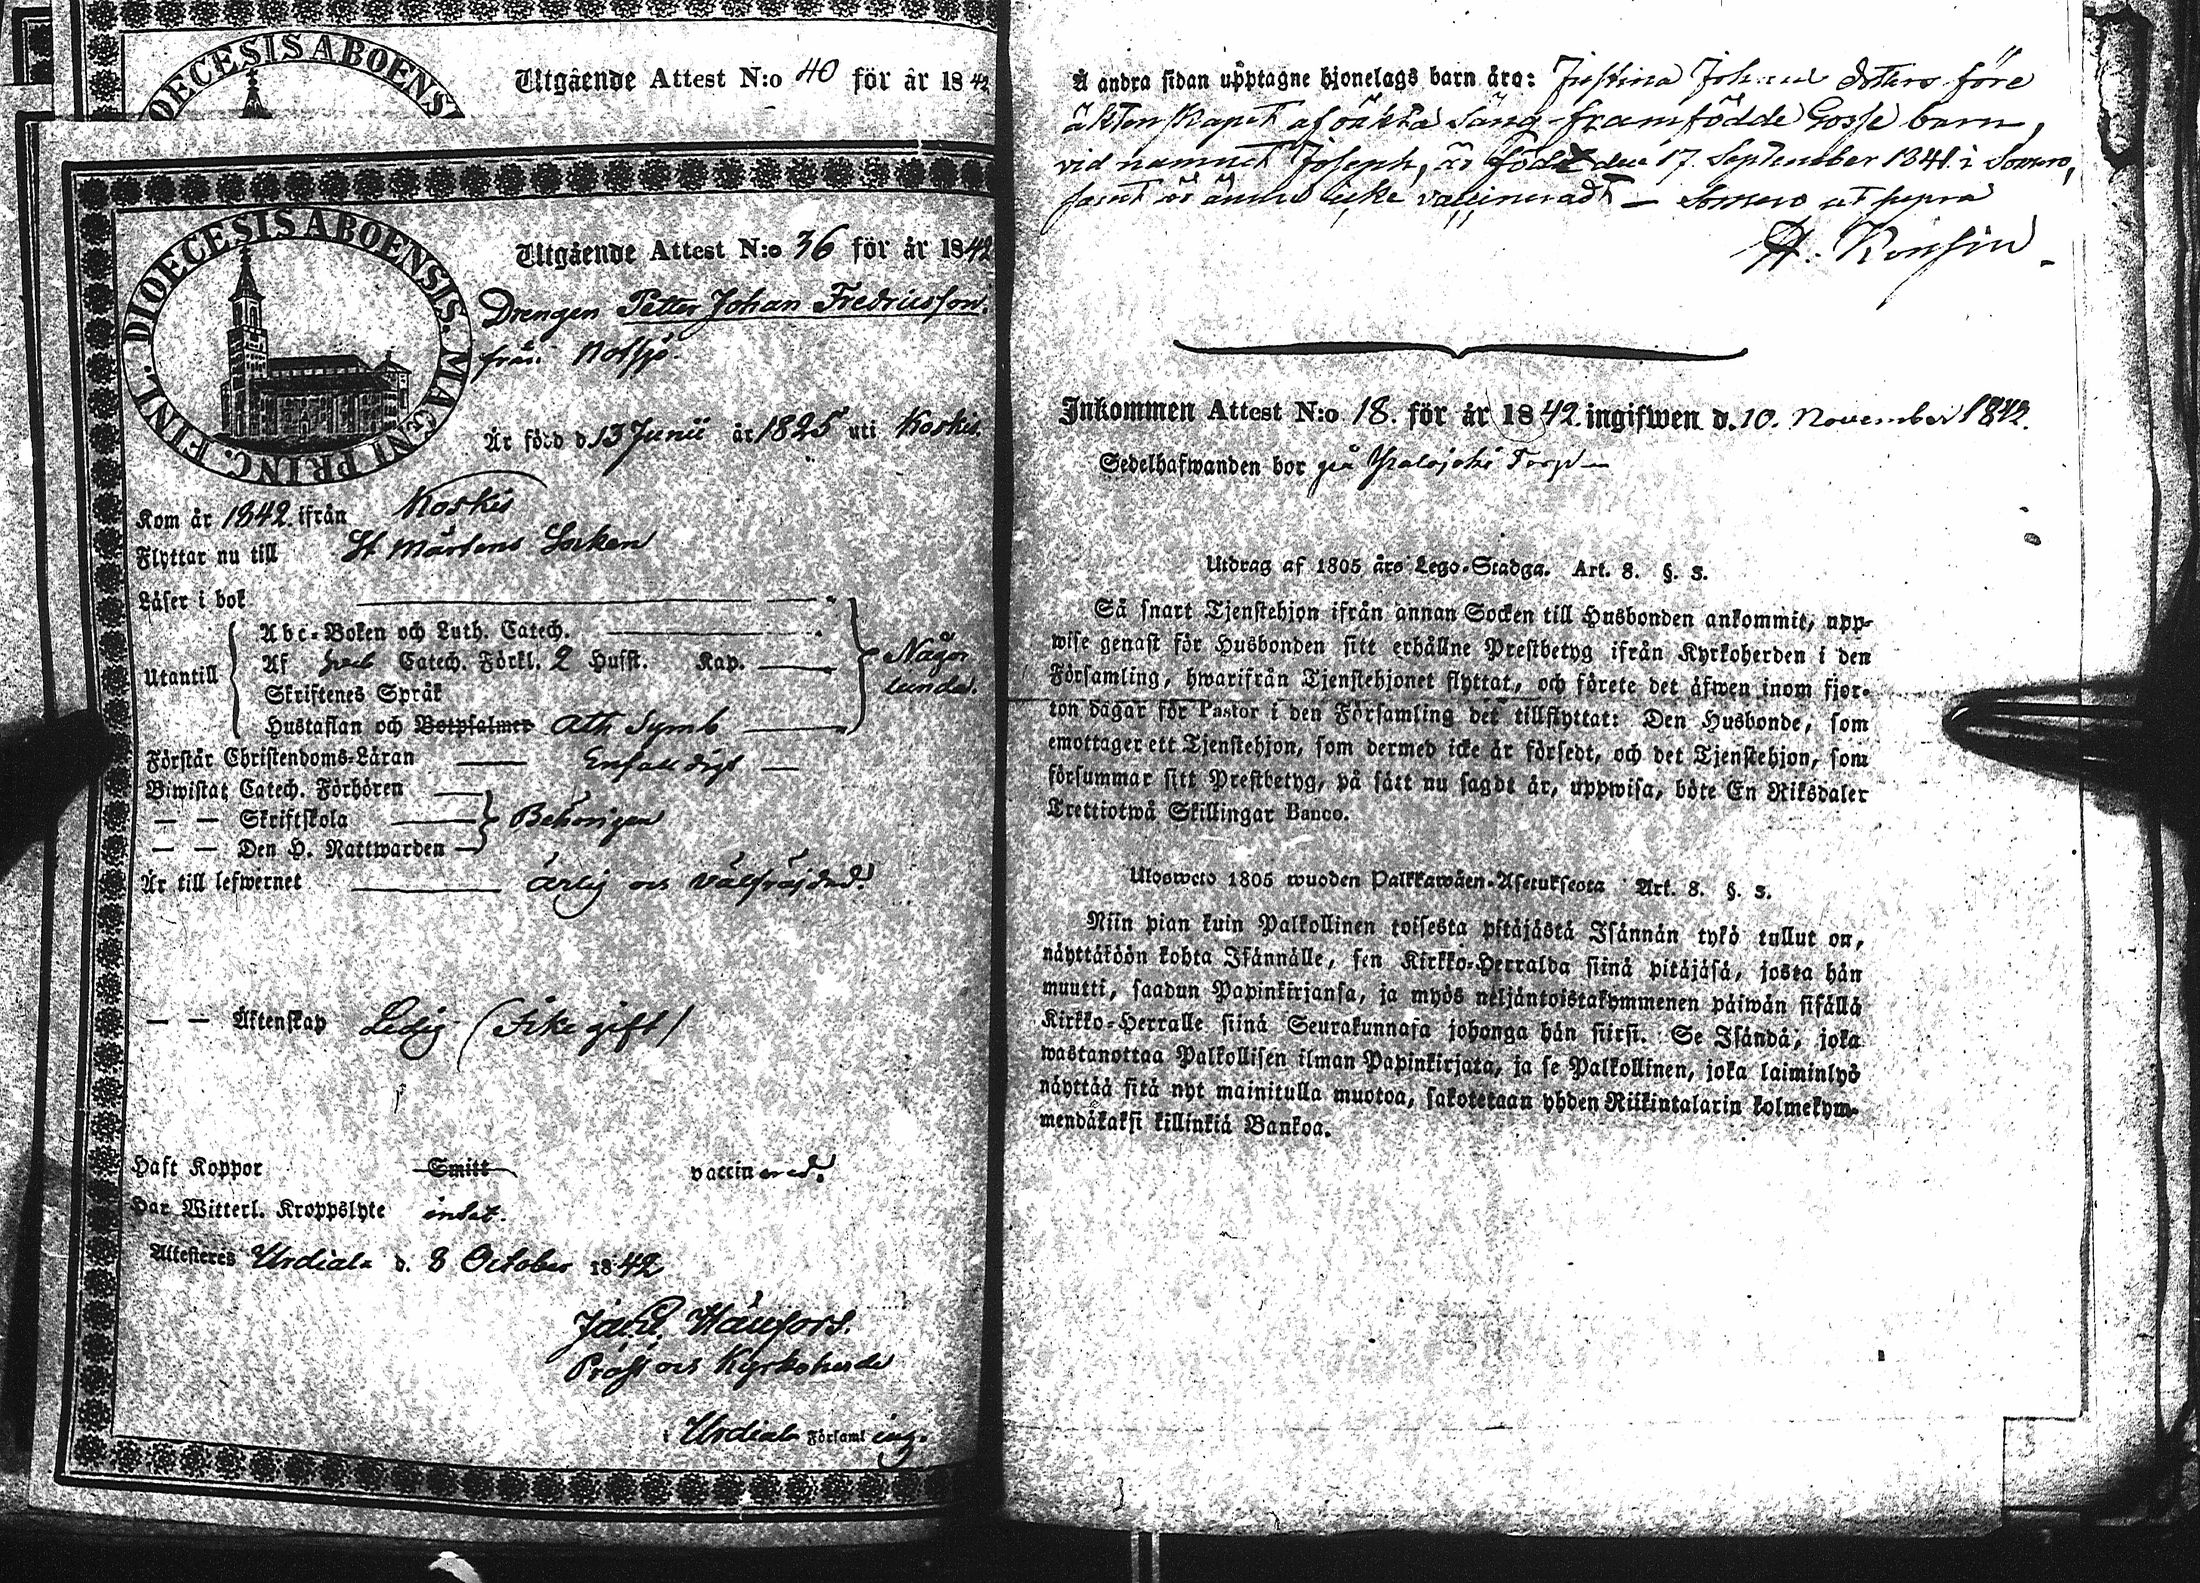 DIOECESIS ABOENS
Utgående Attest N:o 40 för år 1842
DIOECESIS ABOENSIS. MAGNI PRINC. FINL.
Utgående Attest N:o 36 för år 1842
Drengen Petter Johan Fredricsson.
från Notsjö.
Är född d 13 Junii år 1825 uti Koskis.
Kom år 1842. ifrån Koskis
Flyttar nu till St Mårtens Socken
Läser i bok
Abc-Boken och Luth. Catech.
Utantill Af Catech. Förkl. 2 Hufst. Kap. Någor
lunda.
Skriftenes Språk
Hustaflan och Botpsalmer Ath Symb
Förstår Christendoms-Läran Enfalldigt
Biwistat Catech. Förhören
— — Skriftskola Behörigen
— — Den H. Nattwarden
Är till lefwernet ärlig och välfräjdad.
— — Äktenskap Ledig (Icke gift)
Haft Koppor Smitt vaccinerad.
Har Witterl. Kroppslyte intet.
Attesteres Urdiala d. 8 October 1842
Prost och Kyrkoherde
i Urdiala Församling.
Å andra sidan upptagne hjonelags barn äro: Justina Johans dotters före
äktenskapet af oäkta säng framfödde Gosse barn,
vid namnet Joseph, är född den 17. September 1841 i Somero,
samt är ännu icke vaccineradt — Somero ut supra
Inkommen Attest N:o 18. för år 1842. ingifwen d. 10. November 1842.
Sedelhafwanden bor på Torp
Utdrag af 1805 års Lego-Stadga. Art. 8. §. 3.
Så snart Tjenstehjon ifrån annan Socken till Husbonden ankommit, upp-
wise genast för Husbonden sitt erhållne Prestbetyg ifrån Kyrkoherden i den
Församling, hwarifrån Tjenstehjonet flyttat, och förete det äfwen inom fjor-
ton dagar för Pastor i den Församling det tillflyttat: Den Husbonde, som
emottager ett Tjenstehjon, som dermed icke är försedt, och det Tjenstehjon, som
försummar sitt Prestbetyg, på sätt nu sagdt är, uppwisa, böte En Riksdaler
Trettiotwå Skillingar Banco.
Ulosweto 1805 wuoden Palkkawäen-Asetuksesta Art. 8. §. 3.
Niin pian kuin Palkollinen toisesta pitäjästä Isännän tykö tullut on,
näyttäköön kohta Isännälle, sen Kirkko-Herralda siinä pitäjäsä, josta hän
muutti, saadun Papinkirjansa, ja myös neljäntoistakymmenen päiwän sisällä
Kirkko-Herralle siinä Seurakunnasa johonga hän siirsi. Se Isändä, joka
wastanottaa Palkollisen ilman Papinkirjata, ja se Palkollinen, joka laiminlyö
näyttää sitä nyt mainitulla muotoa, sakotetaan yhden Riikintalarin kolmekym-
mendäkaksi killinkiä Bankoa.